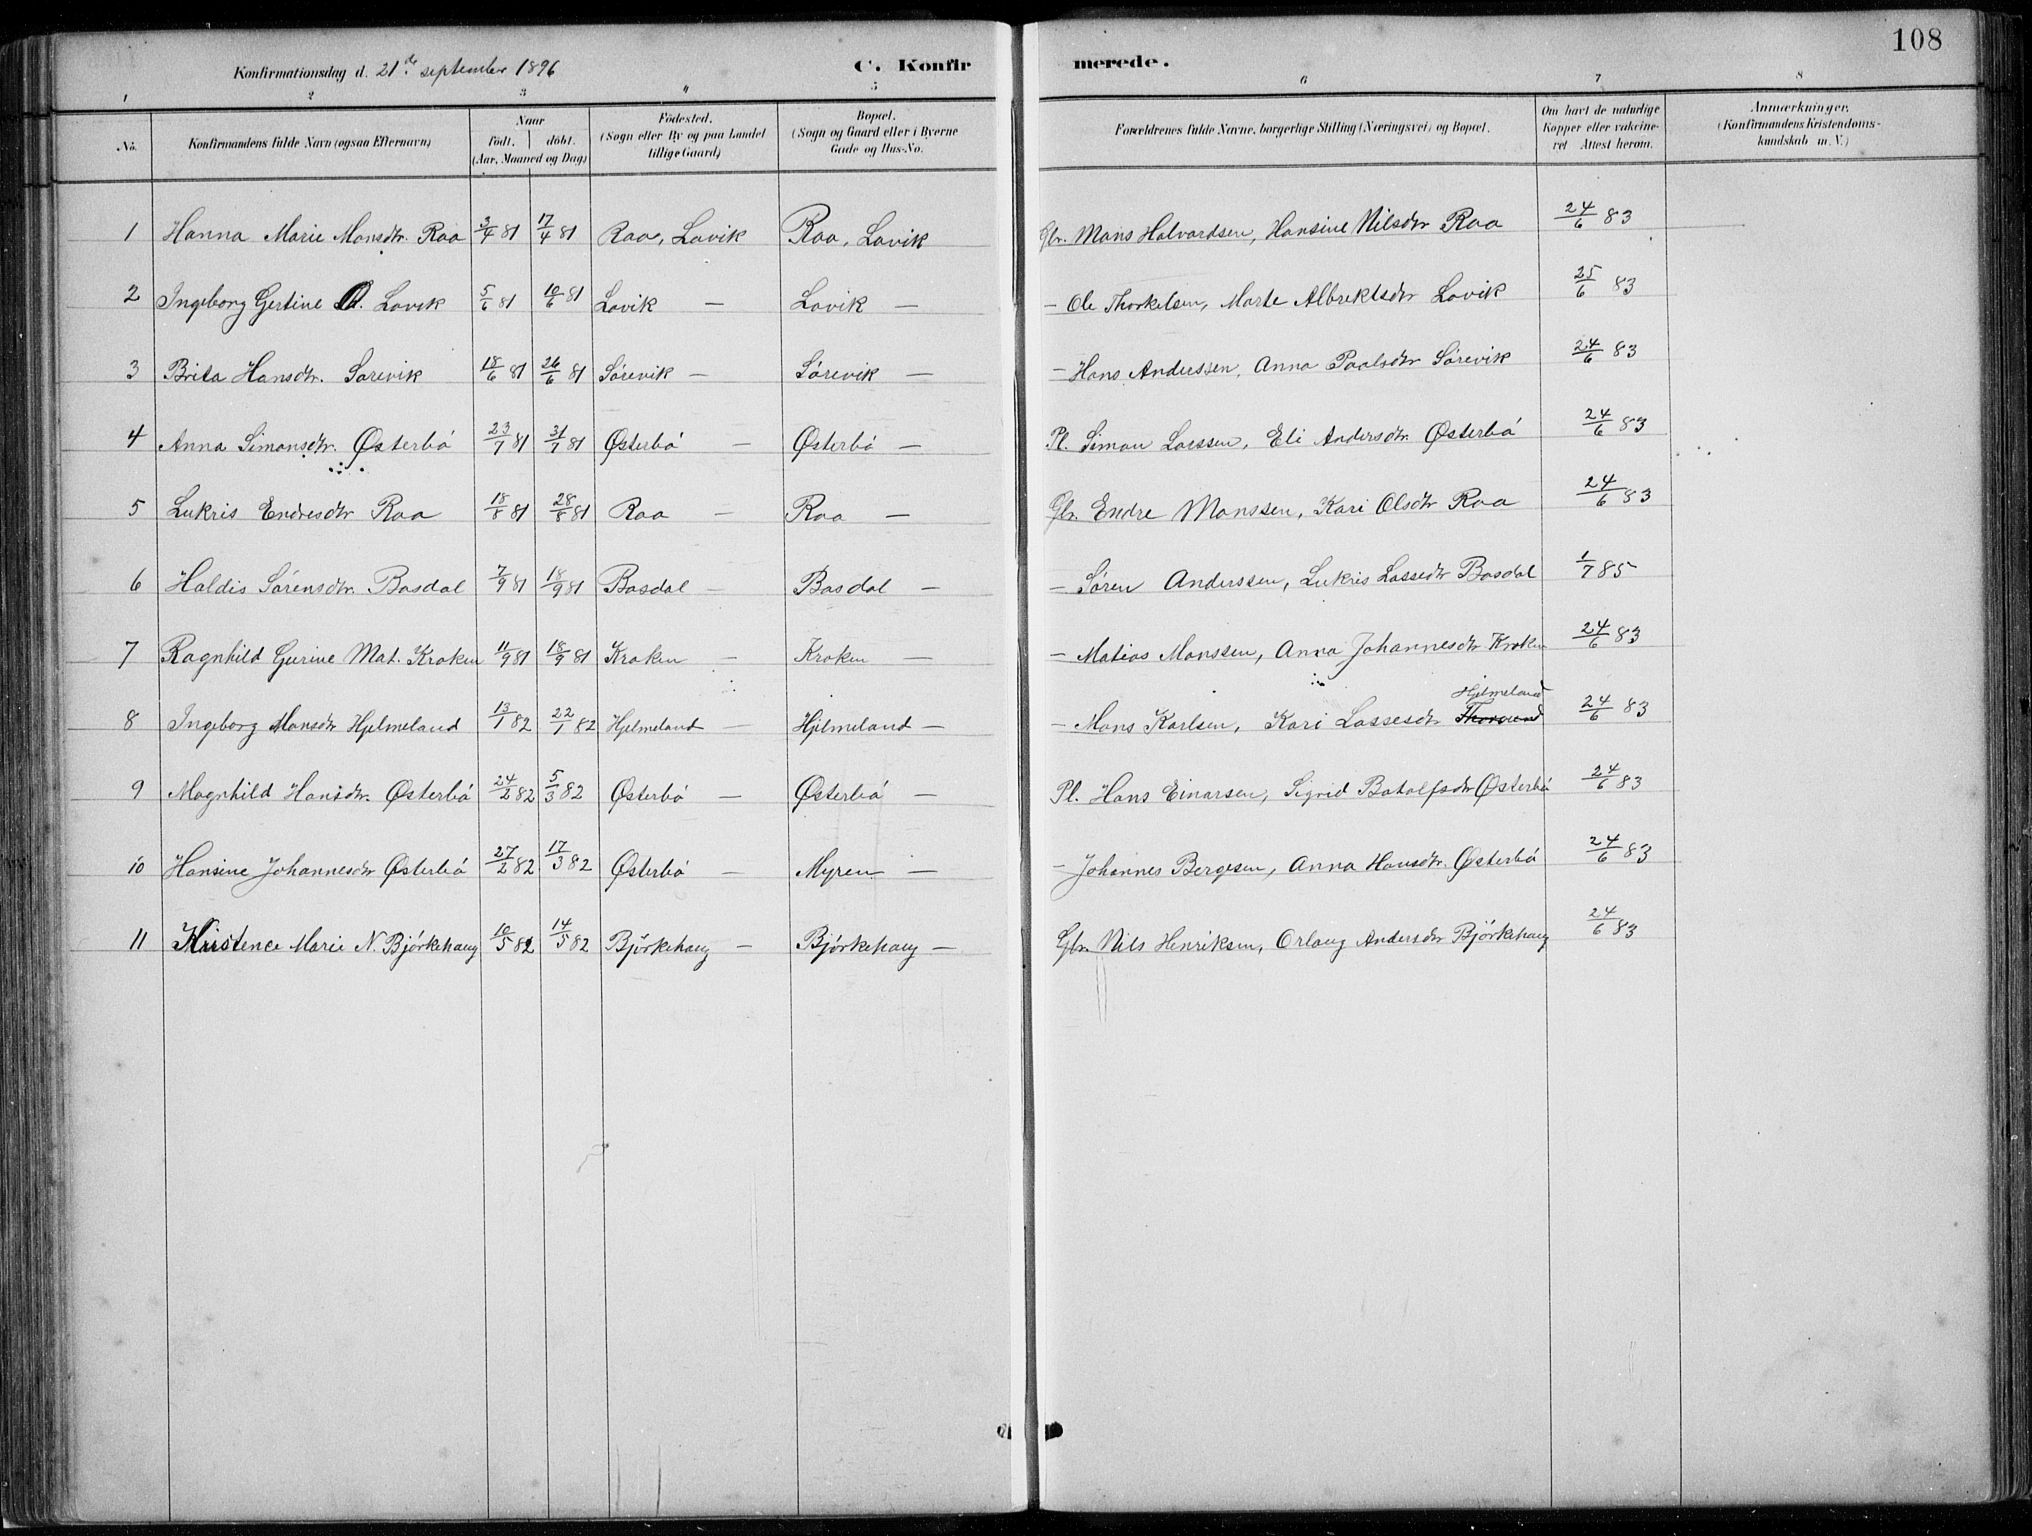 108
Konfirmationsdag d. 21de september 1896 C. Konfir merede.
1 2 3 4 5 6 7 8
No. Konfirmandens fulde Navn (ogsaa Efternavn) Naar födt. döbt. (Aar, Maaned og Dag) Födested. (Sogn eller By og paa Landet tillige Gaard) Bopæl. (Sogn og Gaard eller i Byerne Gade og Hus-No. Forældrenes fulde Navne, borgerlige Stilling (Næringsvei) og Bopæl. Om havt de naturlige Kopper eller vakcineret Attest herom. Anmærkninger. (Konfirmandens Kristendomskundskab m. V.)
1 Hanna Marie Monsdtr. Raa 3/4 81 17/4 81 Raa, Lavik Raa, Lavik Gbr. Mons Halvardsen, Hansine Nilsdtr Raa 24/6 83
2 Ingeborg Gertine O. Lavik 5/6 81 10/6 81 Lavik — Lavik — — Ole Thorkelsen, Marte Albrektsdtr Lavik 25/6 83
3 Brita Hansdtr. Sörevik 18/6 81 26/6 81 Sörevik — Sörevik — — Hans Anderssen, Anna Paalsdtr Sörevik 24/6 83
4 Anna Simonsdtr. Østerbö 23/7 81 31/7 81 Østerbö — Østerbö — Pl. Simon Lassen, Eli Andersdtr. Østerbö 24/6 83
5 Lukris Endresdtr Raa 18/8 81 28/8 81 Raa — Raa — Gbr. Endre Monssen, Kari Olsdtr Raa 24/6 83
6 Haldis Sörensdtr. Basdal 7/9 81 18/9 81 Basdal — Basdal — — Sören Anderssen, Lukris Lassedtr Basdal 1/7 85
7 Ragnhild Gurine Mat. Kroken 11/9 81 18/9 81 Kroken — Kroken — — Matias Monssen, Anna Johannesdtr Kroken 24/6 83
8 Ingeborg Monsdtr Hjelmeland 13/1 82 22/1 82 Hjelmeland — Hjelmeland — — Mons Karlsen, Kari Lassesdtr Hjelmeland 24/6 83
9 Magnhild Hansdtr. Østerbö 24/2 82 5/3 82 Østerbö — Østerbö — Pl. Hans Einarsen, Sigrid Botolfsdtr Østerbö 24/6 83
10 Hansine Johannesdtr Østerbö 27/2 82 17/3 82 Østerbö — Myren — — Johannes Bergesen, Anna Hansdtr. Østerbö 24/6 83
11 Kristence Marie N. Björkehaug 10/5 82 14/5 82 Björkehaug — Björkehaug — Gbr. Nils Henriksen, Orlaug Andersdtr Björkehaug 24/6 83